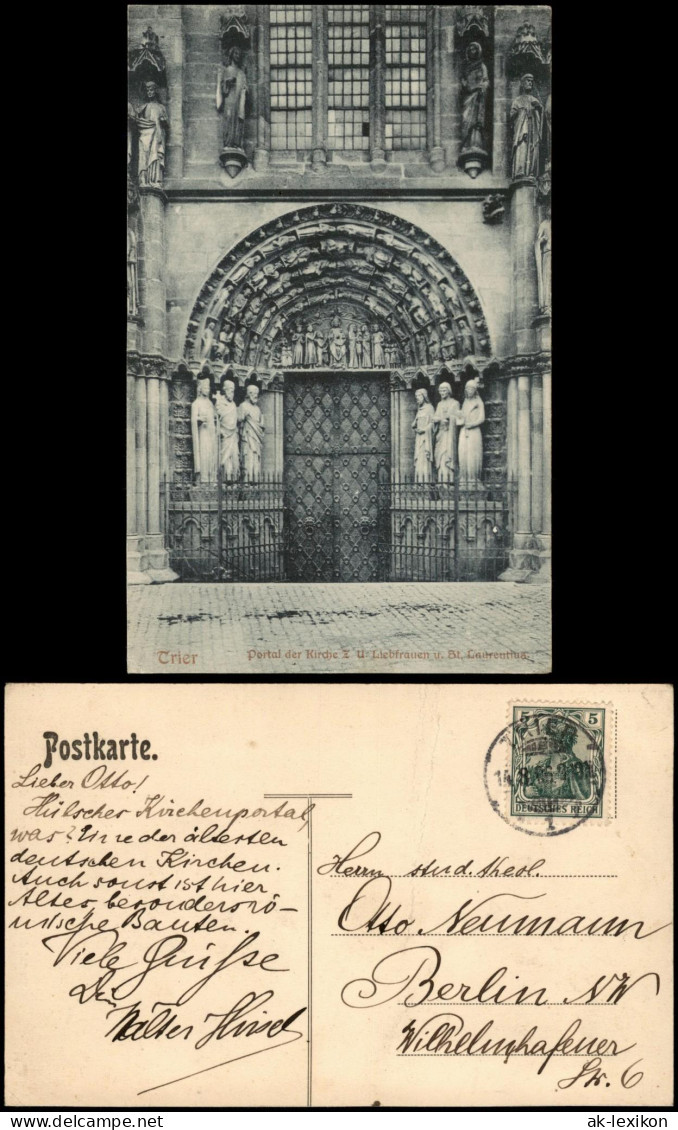 Trier
Portal der Kirche z. U. Liebfrauen u. St. Laurentius.
Postkarte.
Lieber Otto!
Hübsches Kirchenportal,
was? Eine der ältesten
deutschen Kirchen.
Auch sonst ist hier
Altes, besonders rö-
mische Bauten.
Viele Grüße
Dein
Walter
5 5
DEUTSCHES REICH
TRIER
1
Herrn stud. theol.
Otto Neumann
Berlin NW
Wilhelmshafener
Str. 6
delcampe.net
ak-lexikon